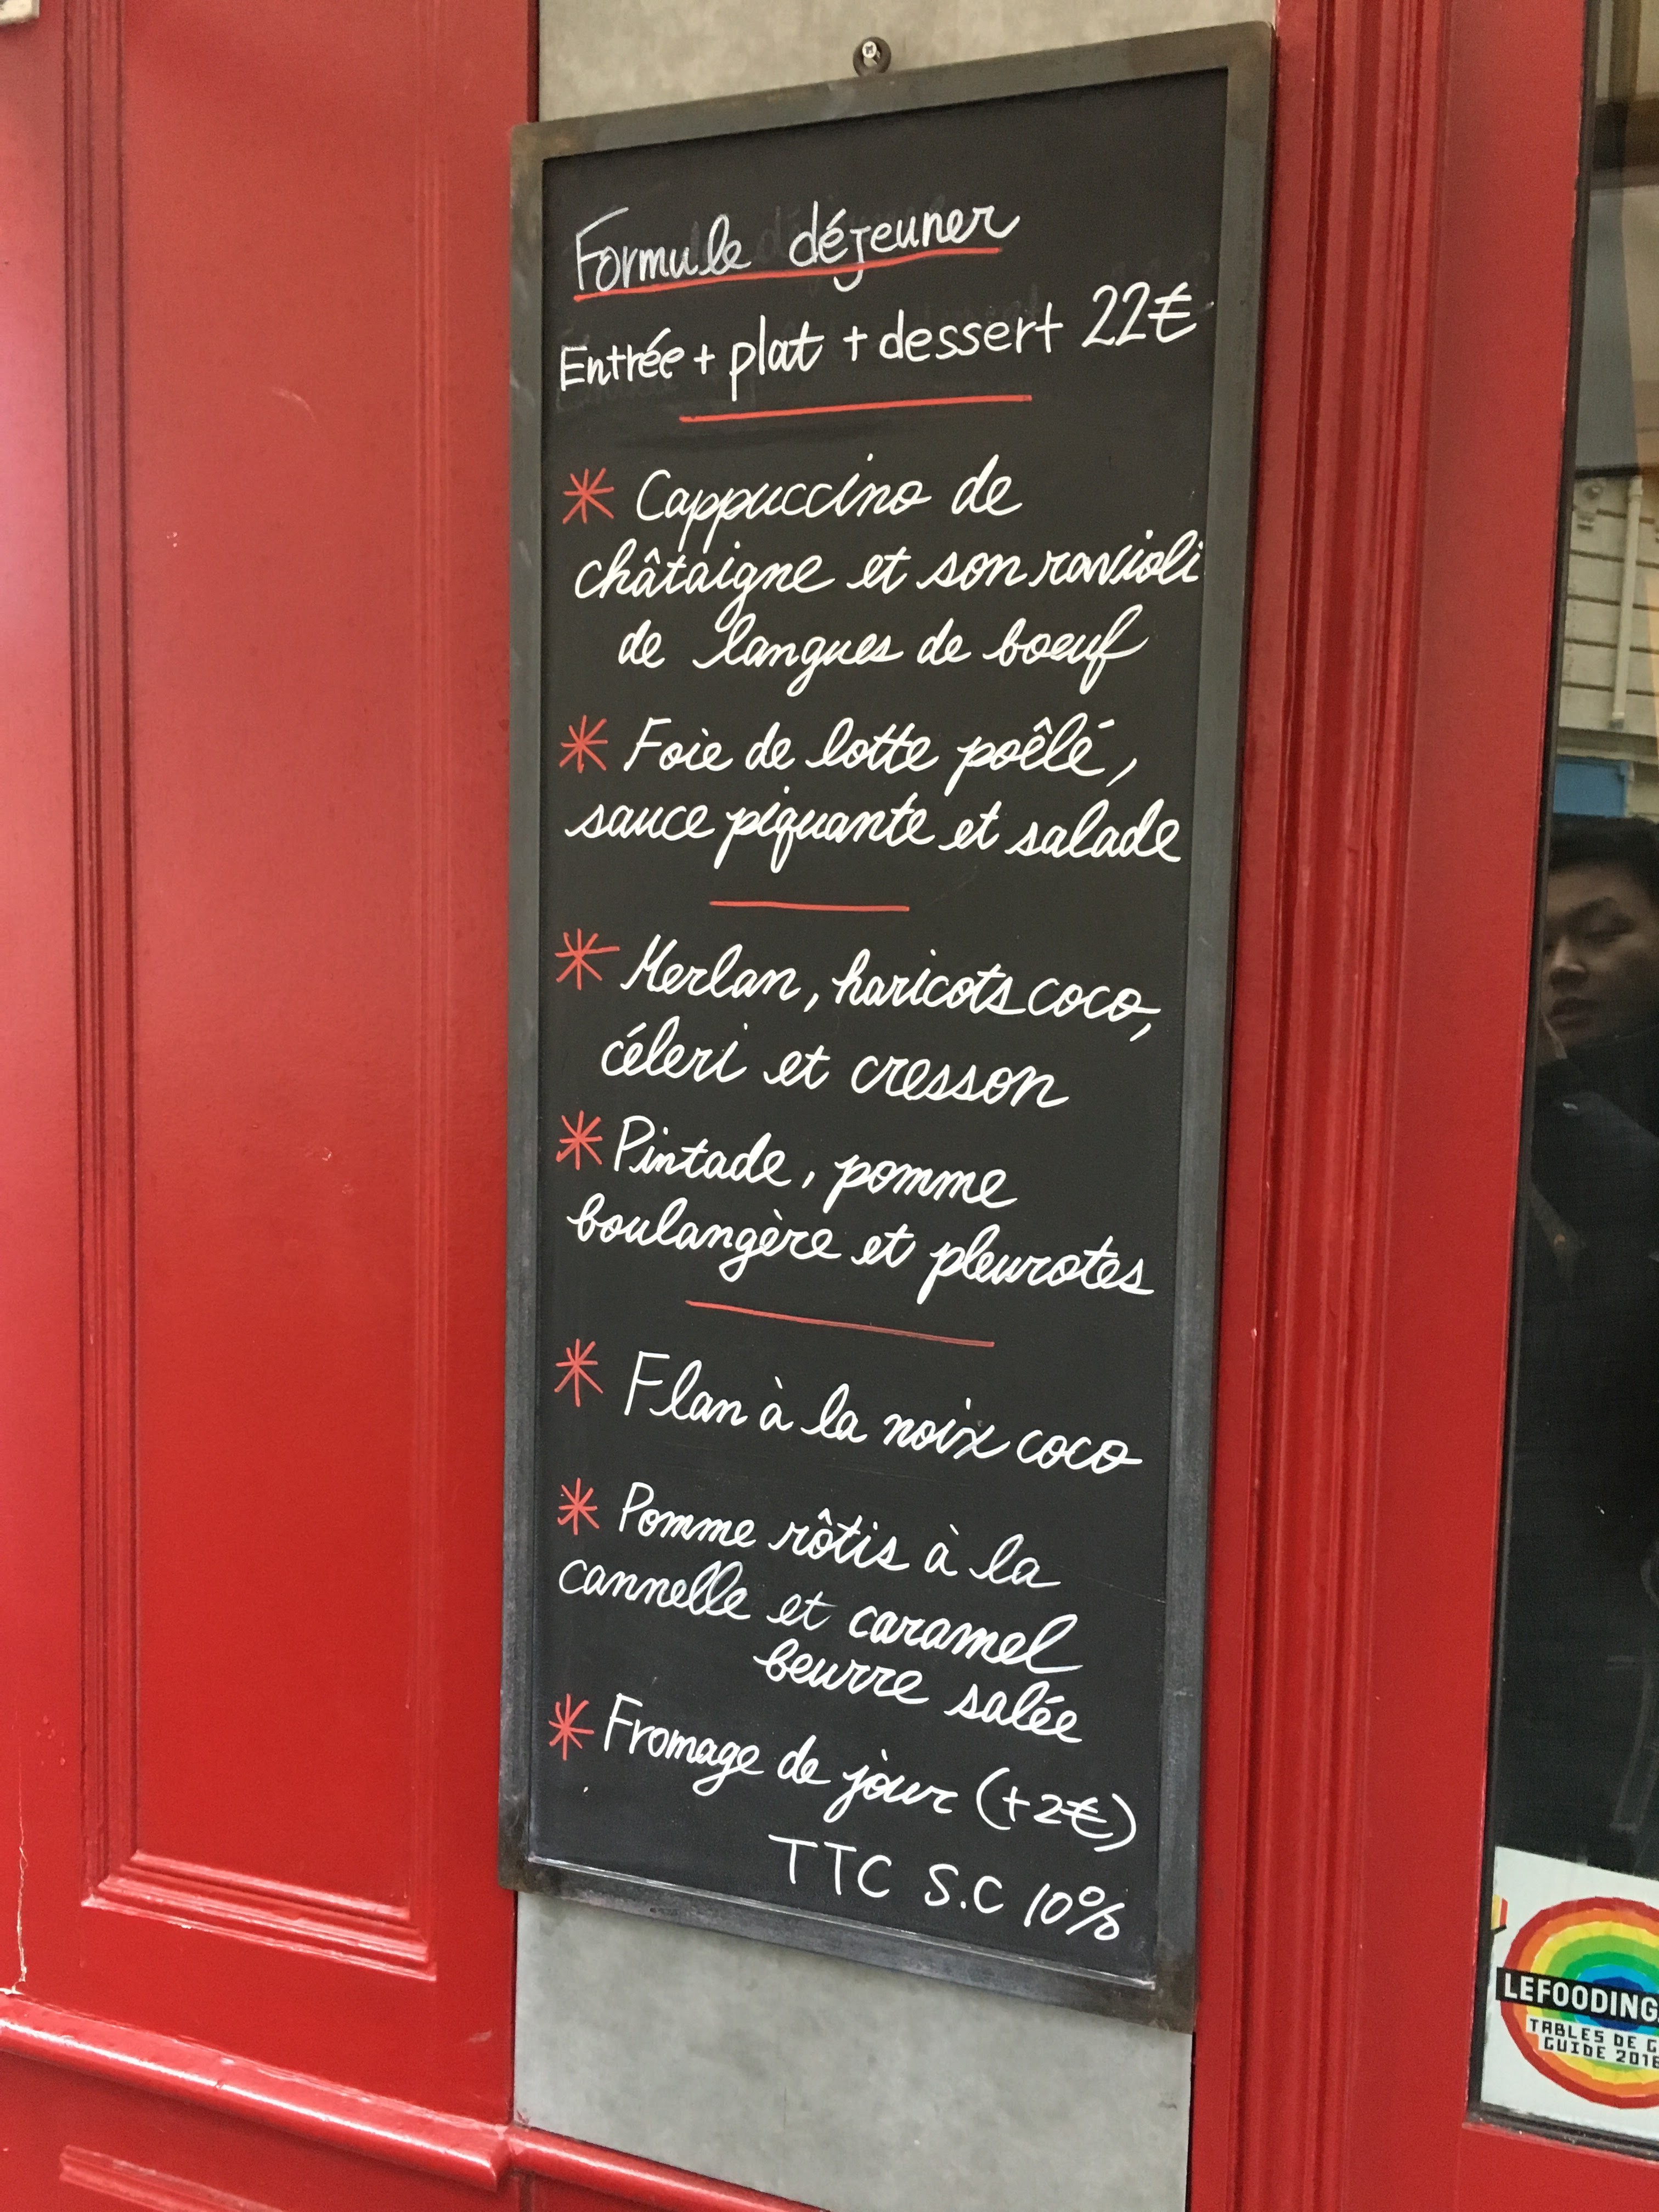 Formule déjeuner
Entrée + plat + dessert 22€
* Cappuccino de
châtaigne et son ravioli
de langues de boeuf
* Foie de lotte poêlé,
sauce piquante et salade
* Merlan, haricots coco,
céleri et cresson
* Pintade, pomme
boulangère et pleurotes
* Flan à la noix coco
* Pomme rôtis à la
cannelle et caramel
beurre salée
* Fromage de jour (+2€)
TTC S.C 10%
LEFOODING
TABLES DE
GUIDE